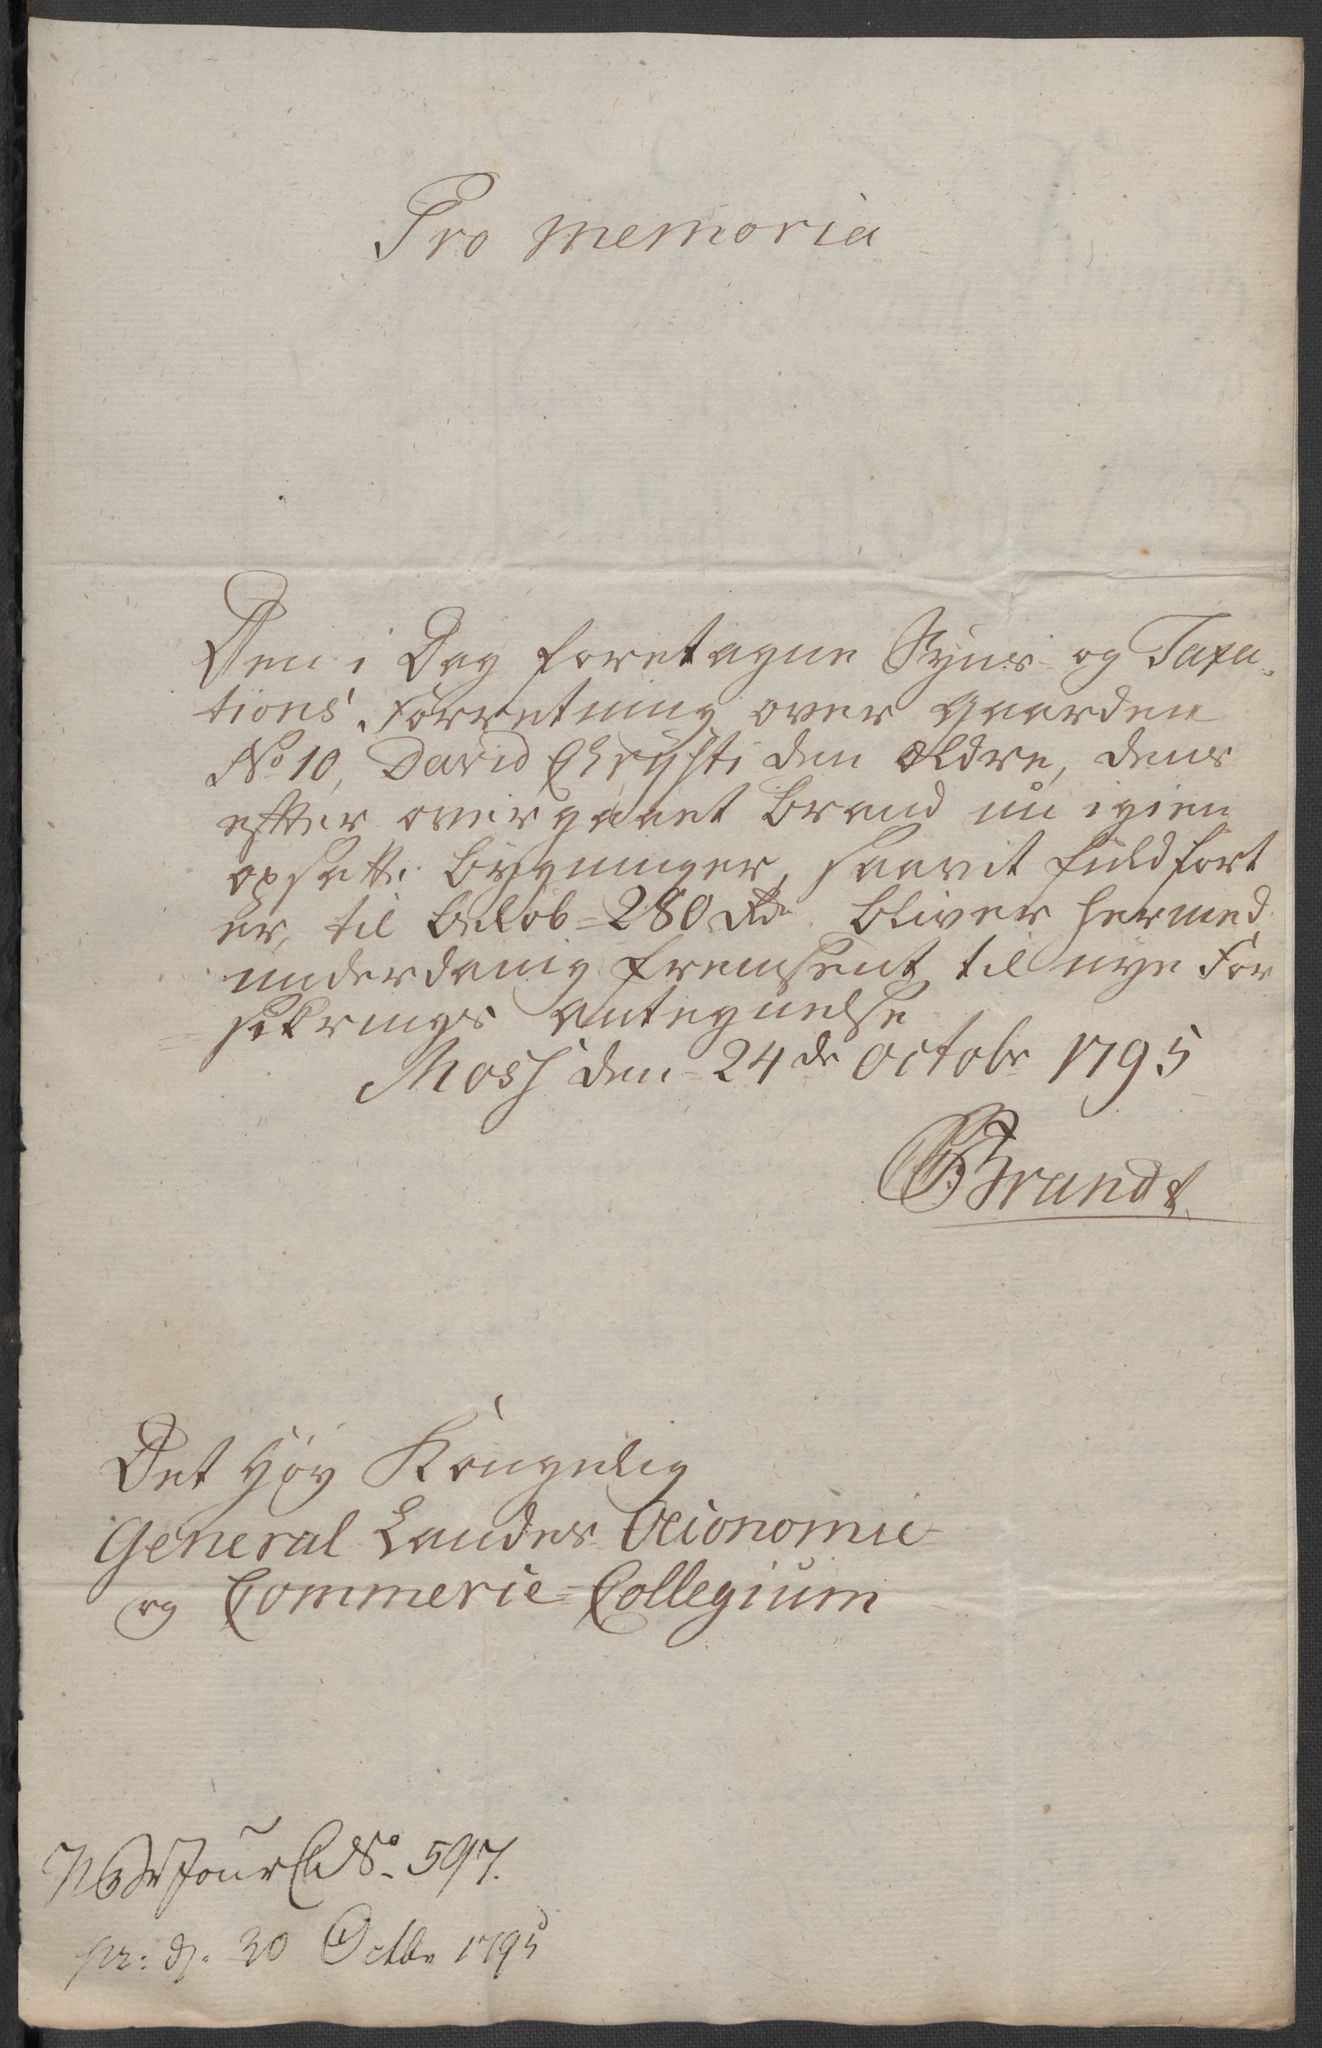 Pro Memoria
Den i Dag foretagne Syns- og Taxa-
tions Forretning over gaarden
No 10, David Chrysti den Ældre, dens
efter overgaaet brand nu igien
opsatte bygninger, saavit fuldført
er, til beløb = 280 Rd bliver hermed
underdanig fremsent til nye For
sikrings antegnelse
Moss den 24de Octobr 1795
Brandt
Det Høy Kongelig
General Landes Oeconomie
og Commercie = Collegium
Jour No 597.
pr: d. 30 Octbr 1795